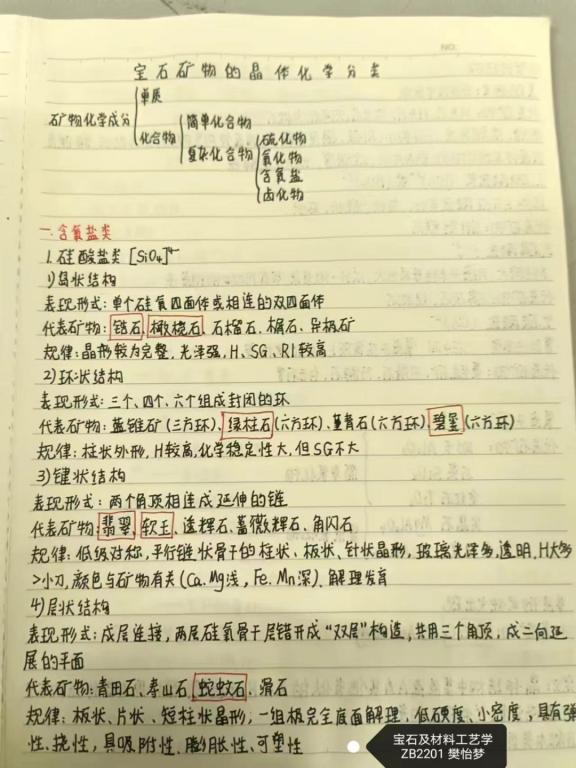 NO.
宝石矿物的晶体化学分类
矿物化学成分
单质
化合物
简单化合物
复杂化合物
硫化物
氧化物
含氧盐
卤化物
一.含氧盐类
1.硅酸盐类 [SiO₄]⁴⁻
1)岛状结构
表现形式:单个硅氧四面体或相连的双四面体
代表矿物:锆石、橄榄石、石榴石、榍石、异极矿
规律:晶形较为完整,光泽强,H、SG、RI较高
2)环状结构
表现形式:三个、四个、六个组成封闭的环
代表矿物:蓝锥矿(三方环)、绿柱石(六方环)、堇青石(六方环)、碧玺(六方环)
规律:柱状外形,H较高,化学稳定性大,但SG不大
3)链状结构
表现形式:两个角顶相连成延伸的链
代表矿物:翡翠、软玉、透辉石、蔷薇辉石、角闪石
规律:低级对称,平行链状骨干的柱状、板状、针状晶形,玻璃光泽多,透明,H大多
>小刀,颜色与矿物有关(Ca.Mg浅,Fe.Mn深).解理发育
4)层状结构
表现形式:成层连接,两层硅氧骨干层错开成“双层”构造,共用三个角顶,成二向延
展的平面
代表矿物:青田石、寿山石、蛇纹石、滑石
规律:板状、片状、短柱状晶形,一组极完全底面解理,低硬度、小密度,具有弹
性、挠性,具吸附性、膨胀性、可塑性
宝石及材料工艺学
ZB2201 樊怡梦